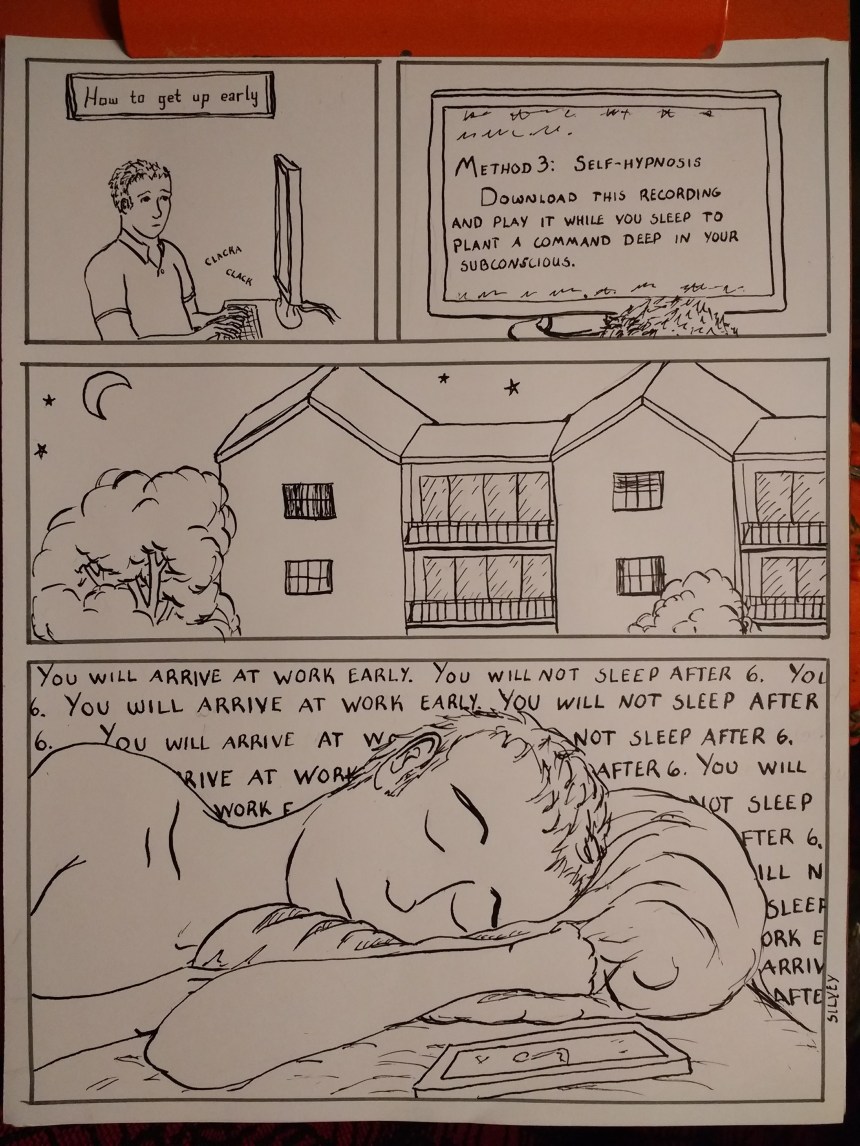 How to get up early
CLACKA
CLACK
METHOD 3: SELF-HYPNOSIS
DOWNLOAD THIS RECORDING
AND PLAY IT WHILE YOU SLEEP TO
PLANT A COMMAND DEEP IN YOUR
SUBCONSCIOUS.
YOU WILL ARRIVE AT WORK EARLY. YOU WILL NOT SLEEP AFTER 6. YOU
6. YOU WILL ARRIVE AT WORK EARLY. YOU WILL NOT SLEEP AFTER
6. YOU WILL ARRIVE AT WO NOT SLEEP AFTER 6.
RIVE AT WORK AFTER 6. YOU WILL
WORK E NOT SLEEP
FTER 6.
ILL N
SLEEP
ORK E
ARRIV
AFTE
SILVEY